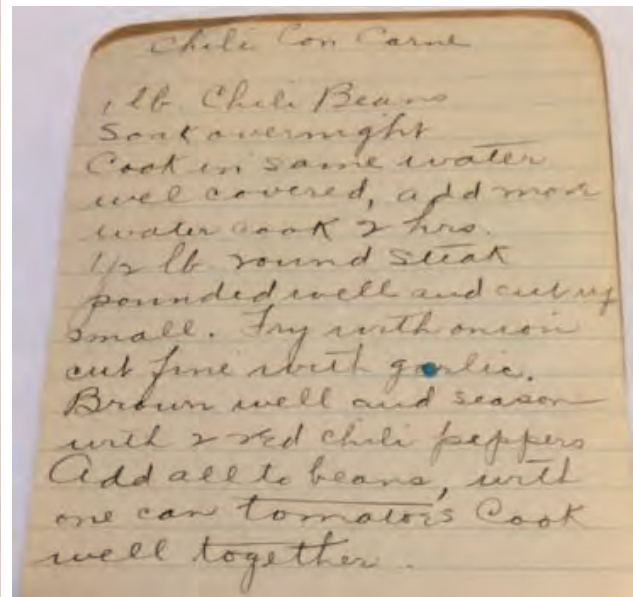 Chili Con Carne
1 lb Chili Beans
Soak overnight
Cook in same water
well covered, add more
water cook 2 hrs.
1/2 lb round steak
pounded well and cut up
small. Fry with onion
cut fine with garlic.
Brown well and season
with 2 red chili peppers
Add all to beans, with
one can tomatoes Cook
well together.